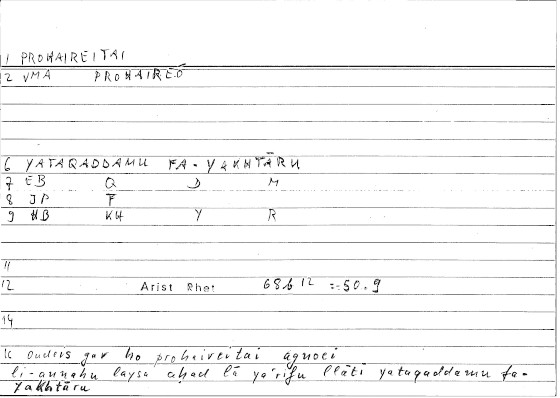 1 PROHAIREITAI
2 VMA PROHAIREŌ
6 YATAQADDAMU FA-YAKHTĀRU
7 EB Q D M
8 JP F
9 HB KH Y R
11
12 Arist Rhet 68b12 = 50.9
14
16 oudeis gar ho prohaireitai agnoei
li-annahu laysa aḥad lā ya'rifu llātī yataqaddamu fa-
yakhtāru